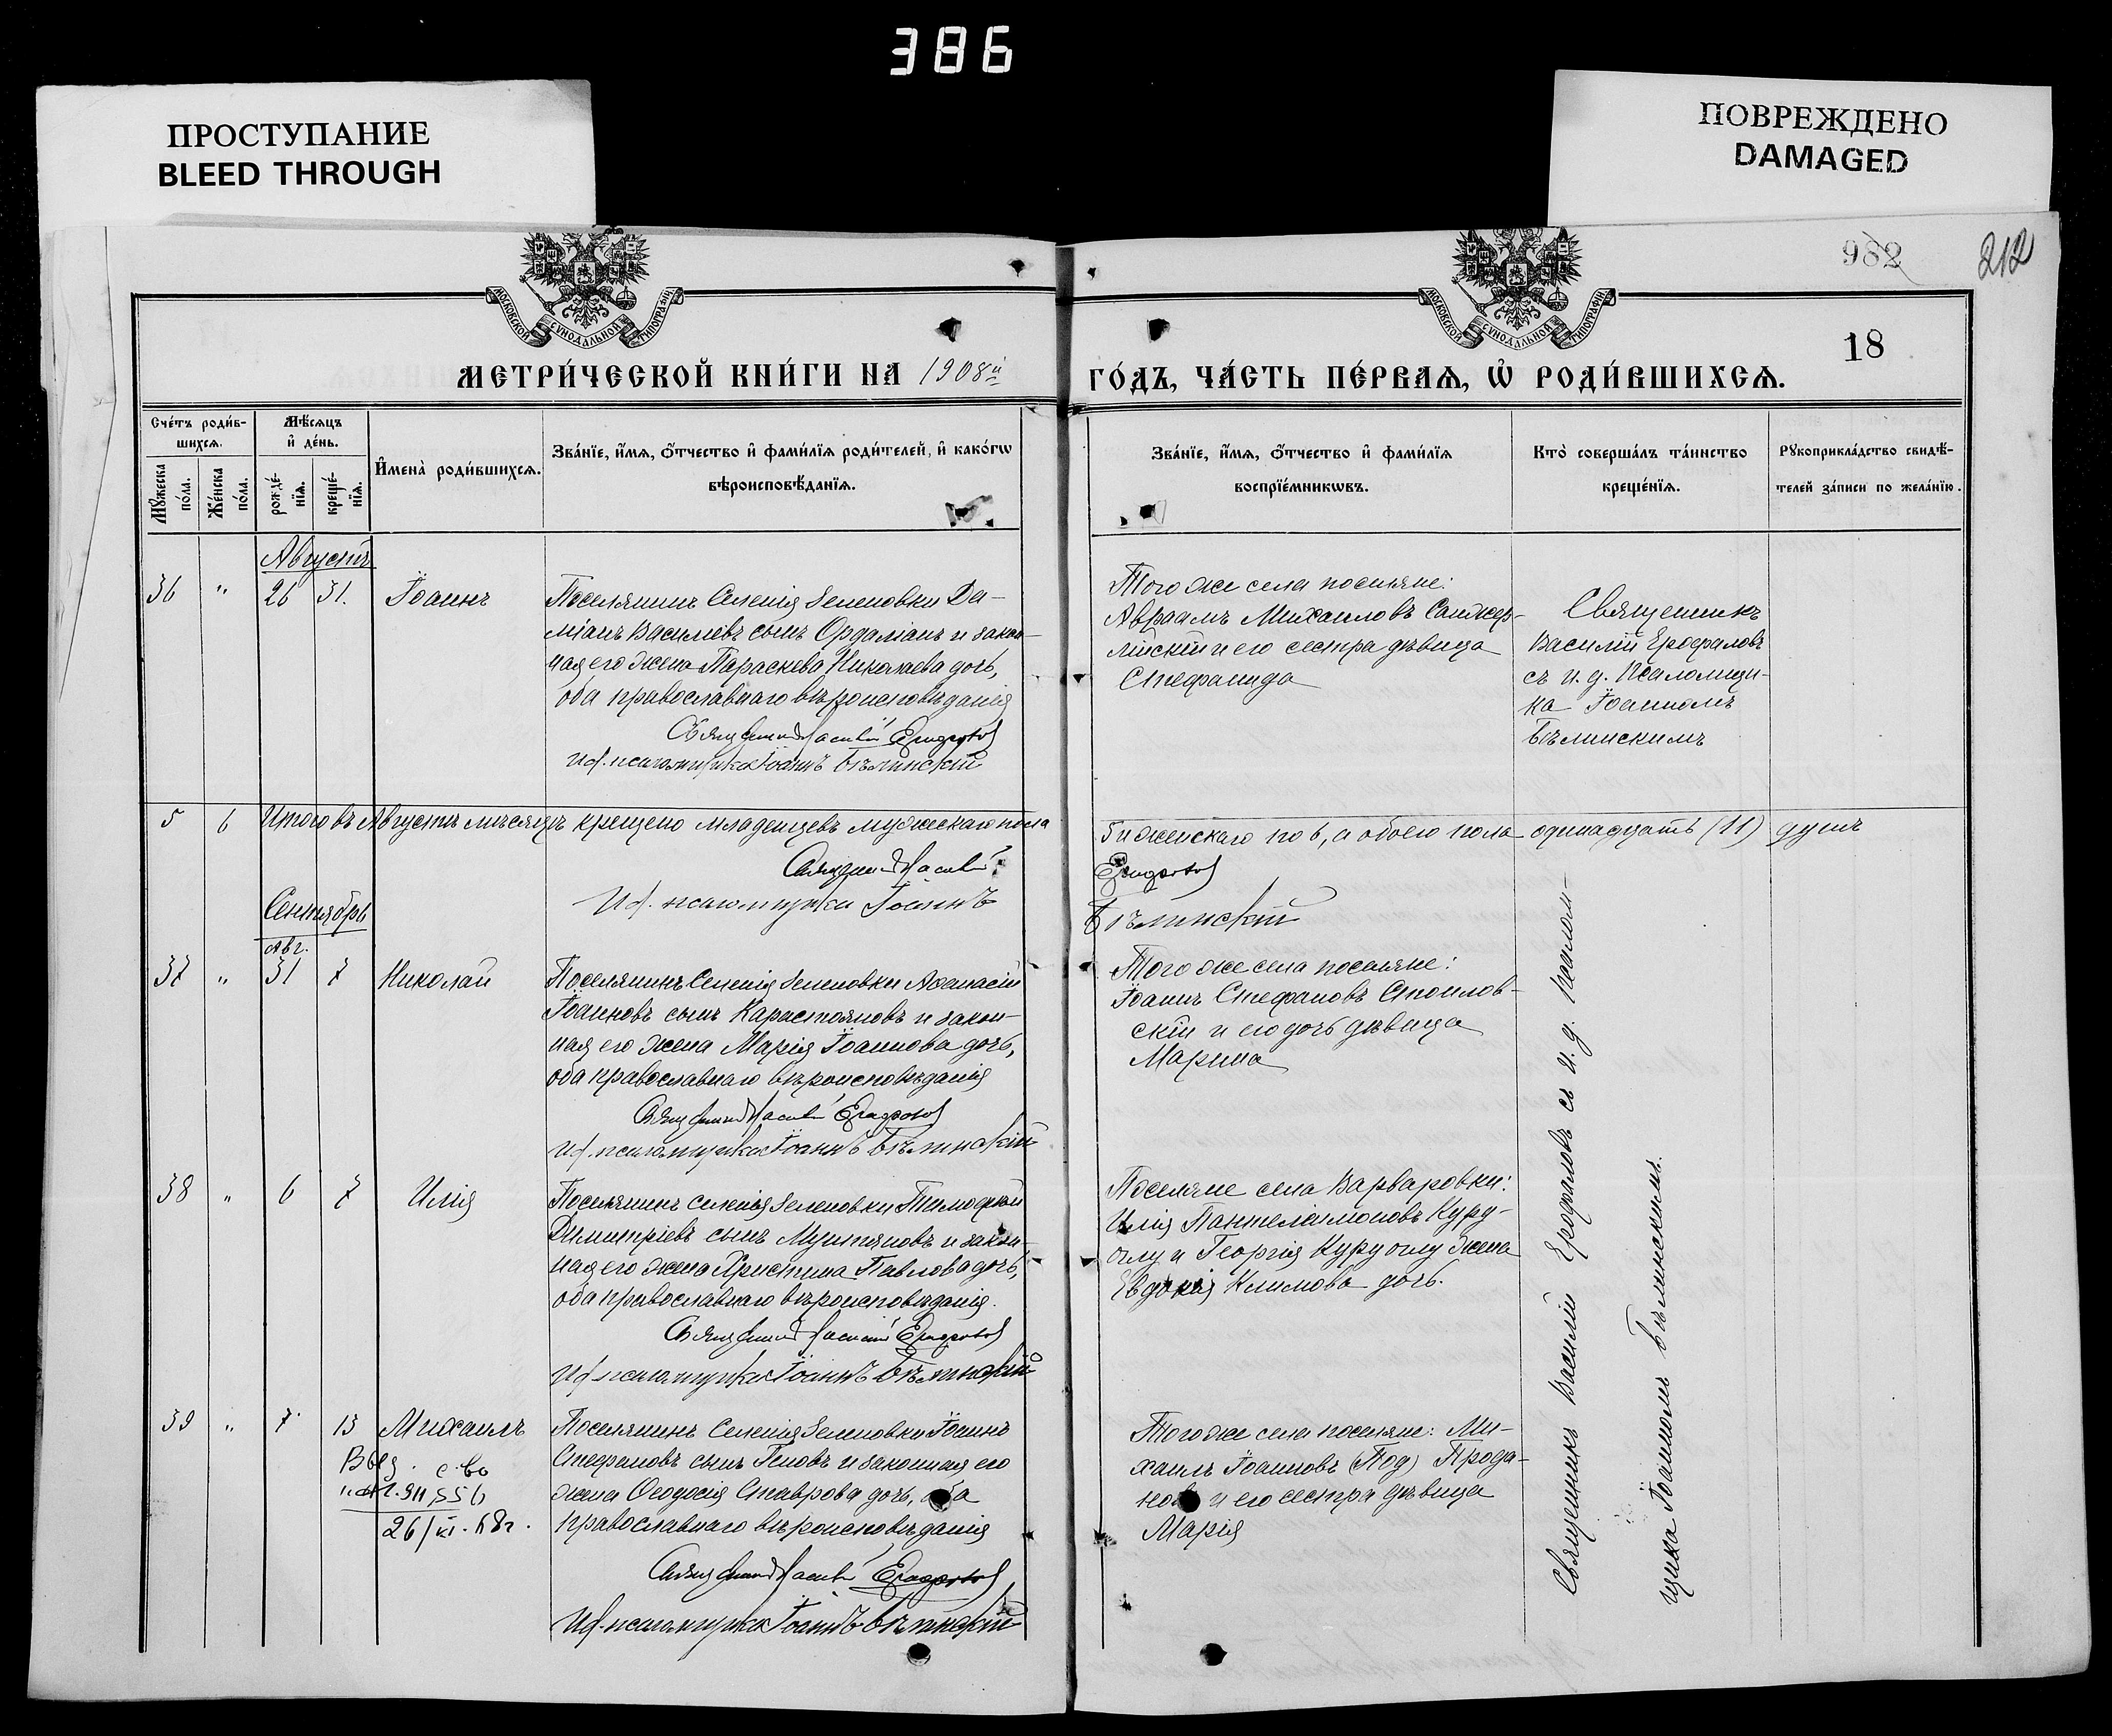 386
ПРОСТУПАНИЕ
BLEED THROUGH
ПОВРЕЖДЕНО
DAMAGED
982
212
18
МОСКОВСКОЙ СѴНОДАЛЬНОЙ ТИПОГРАФІИ
МОСКОВСКОЙ СѴНОДАЛЬНОЙ ТИПОГРАФІИ
МЕТРИ́ЧЕСКОЙ КНИ́ГИ НА 1908й
ГО́ДЪ, ЧА́СТЬ ПЕ́РВАѦ, Ѡ҆ РОДИ́ВШИХСѦ.
Сче́тъ роди́в-
шихсѧ.
Мѣ́сѧцъ
и҆ де́нь.
Мꙋ́жеска
по́ла.
Же́нска
по́ла.
рожде́-
нїѧ.
креще́-
нїѧ.
И҆мена̀ роди́вшихсѧ.
Зва́нїе, и҆́мѧ, ѻ҆́тчество и҆ фами́лїѧ роди́телей, и҆ како́гѡ
вѣроисповѣ́данїѧ.
Зва́нїе, и҆́мѧ, ѻ҆́тчество и҆ фами́лїѧ
воспрїе́мникѡвъ.
Кто̀ соверша́лъ та́инство
креще́нїѧ.
Рꙋкоприкла́дство свидѣ́-
телей за́писи по жела́нїю.
Августъ
36 " 26 31. Іоаннъ
Поселянинъ Селенія Зеленовки Да-
міанъ Василіевъ сынъ Ордаліанъ и закон-
ная его жена Параскева Николаева дочь,
оба православнаго вѣроисповѣданія
Священникъ Василій
и.д. псаломщика Іоаннъ Бѣлинскій
Того же села поселяне:
Авраамъ Михаиловъ
и его сестра дѣвица
Стефанида
Священникъ
Василій
съ и. д. Псаломщи-
ка Іоанномъ
Бѣлинскимъ
5 6 Итого въ Августѣ мѣсяцѣ крещено младенцевъ мужескаго пола
5 и женскаго по 6, а обоего пола одинадцать (11) душъ
Священникъ Василій
И.д. псаломщика Іоаннъ
Бѣлинскій
Сентябрь
Авг.
37 " 31 7 Николай
Поселянинъ Селенія Зеленовки Аѳанасій
Іоанновъ сынъ Карастояновъ и закон-
ная его жена Марія Іоаннова дочь,
оба православнаго вѣроисповѣданія
Священникъ Василій
и.д. псаломщика Іоаннъ Бѣлинскій
Того же села поселяне:
Іоаннъ Стефановъ Стоилов-
скій и его дочь дѣвица
Марина
38 " 6 7 Илія
Поселянинъ селенія Зеленовки Тимоѳей
Димитріевъ сынъ и закон-
ная его жена Христина Павлова дочь,
оба православнаго вѣроисповѣданія.
Священникъ Василій
и.д. псаломщика Іоаннъ Бѣлинскій
Поселяне села Варваровки:
Илія Пантелеимоновъ Куру-
оглу и Георгія Куруоглу жена
Евдокія Климова дочь.
39 " 7 13 Михаилъ
Поселянинъ Селенія Зеленовки Іоаннъ
Стефановъ сынъ Геновъ и законная его
жена Ѳеодосія Ставрова дочь, оба
православнаго вѣроисповѣданія
Священникъ Василій
И.д. псаломщика Іоаннъ Бѣлинскій
Того же села поселяне: Ми-
хаилъ Іоанновъ (Под) Прода-
новъ и его сестра дѣвица
Марія
26/XI.68г.
Священникъ Василій съ и. д. псалом-
щика Іоанномъ Бѣлинскимъ.